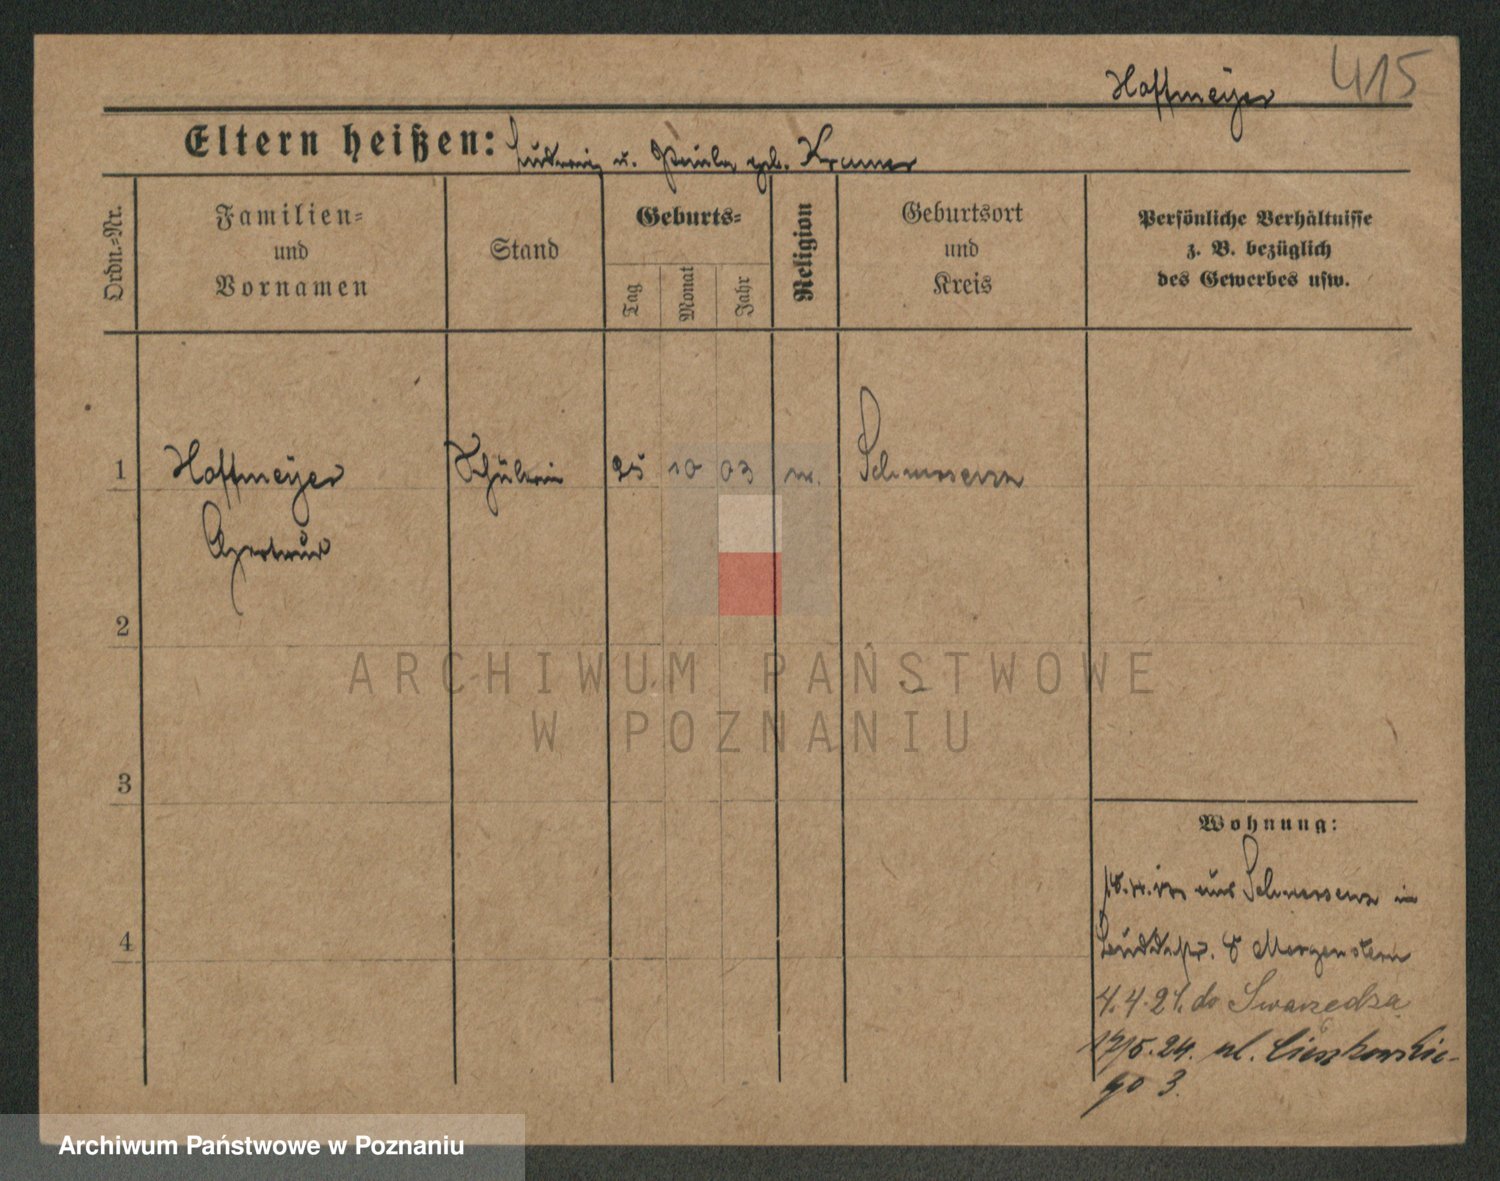 415
Hoffmeyer
Eltern heißen: Ludwig u. Paula geb. Kramer
Ordn.=Nr.
Familien=
und
Vornamen
Stand
Geburts=
Tag
Monat
Jahr
Religion
Geburtsort
und
Kreis
Persönliche Verhältnisse
z. B. bezüglich
des Gewerbes usw.
1 Hoffmeyer Schülerin 25 10 03 Schwersenz
Gertrud
2
3
4
Wohnung:
aus Schwersenz in
8 Morgenstern
4.4.21. do Swarzędza
17/5.24. ul. Cieszkowskie-
go 3.
ARCHIWUM PAŃSTWOWE
W POZNANIU
Archiwum Państwowe w Poznaniu